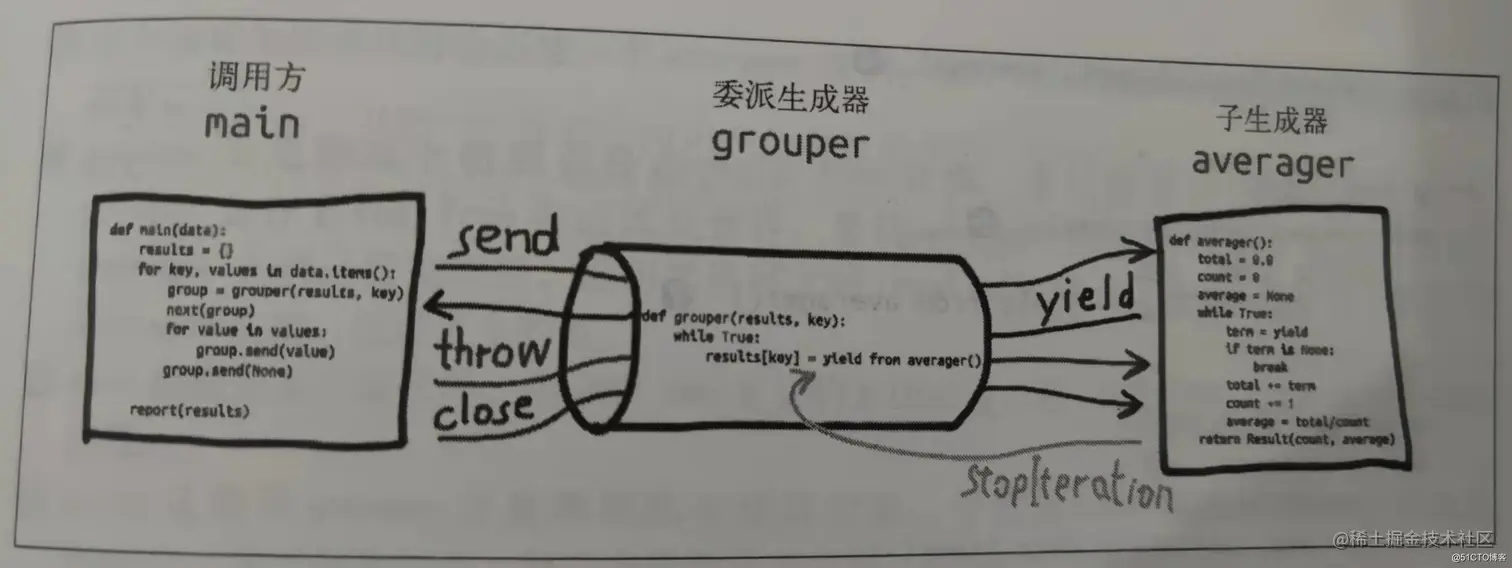 调用方
main
def main(data):
    results = {}
    for key, values in data.items():
        group = grouper(results, key)
        next(group)
        for value in values:
            group.send(value)
        group.send(None)
    report(results)
send
throw
close
委派生成器
grouper
def grouper(results, key):
    while True:
        results[key] = yield from averager()
yield
StopIteration
子生成器
averager
def averager():
    total = 0.0
    count = 0
    average = None
    while True:
        term = yield
        if term is None:
            break
        total += term
        count += 1
        average = total/count
    return Result(count, average)
@稀土掘金技术社区
@51CTO博客